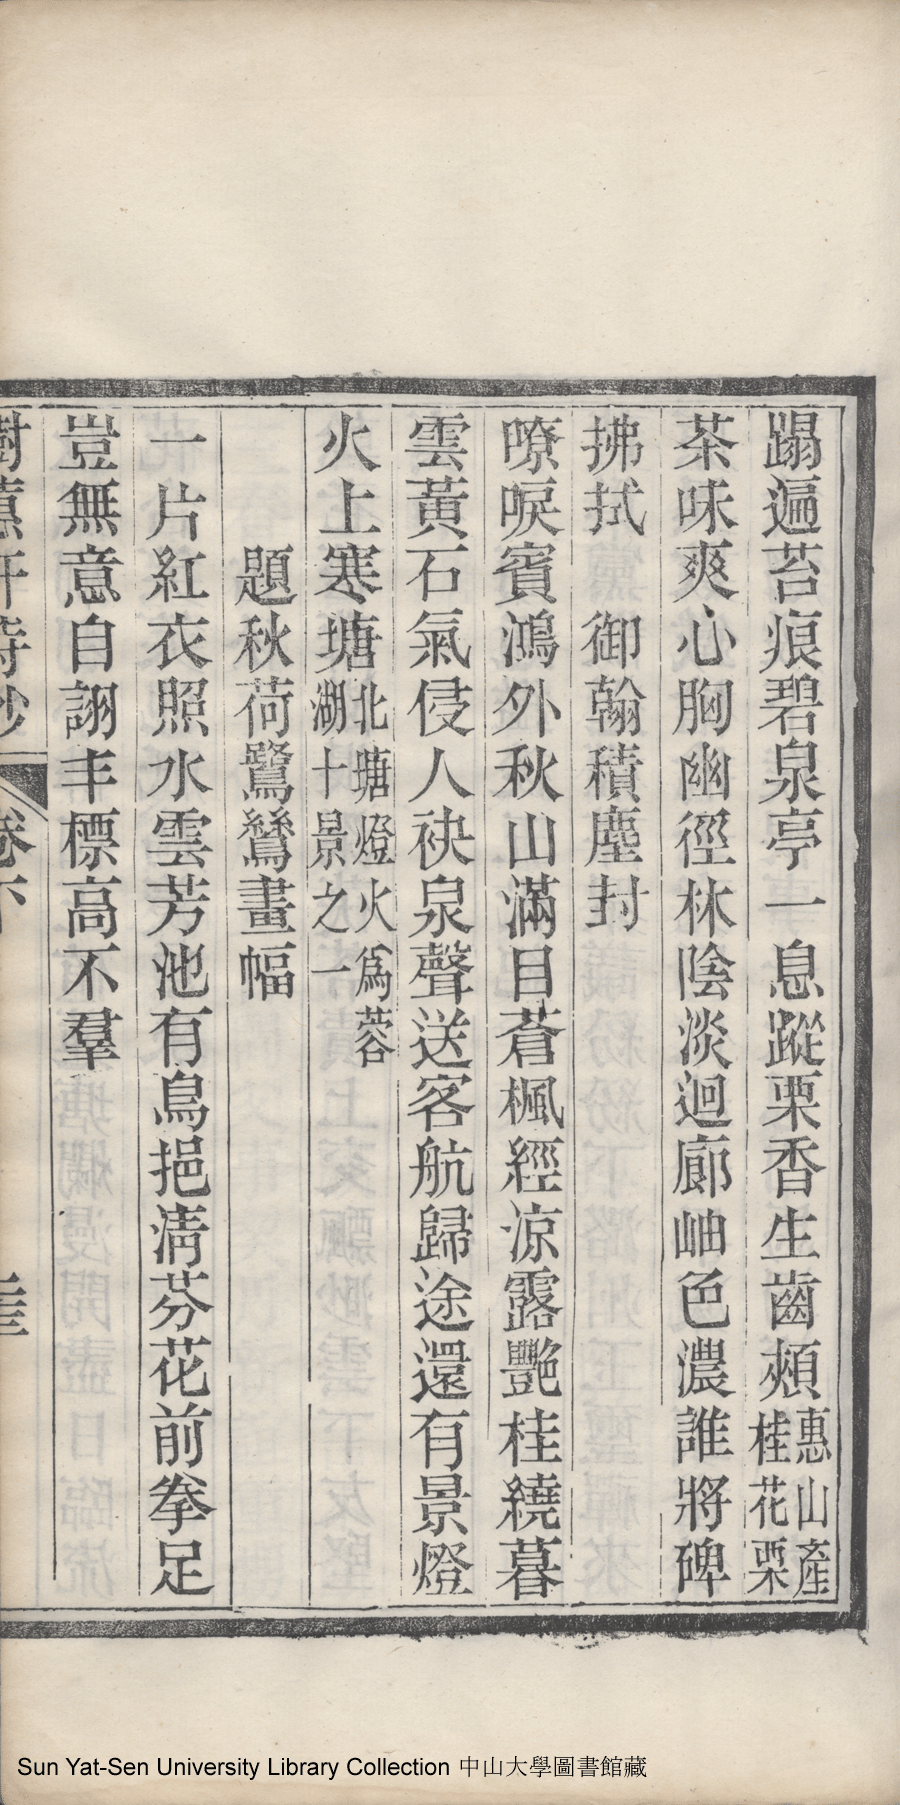 蹋遍苔痕碧泉亭一息蹤栗香生齒頰惠山產桂花栗
茶味爽心胸幽徑林陰淡迴廊岫色濃誰將碑
拂拭　御翰積塵封
嘹唳賓鴻外秋山滿目蒼楓經涼露艷桂繞暮
雲黃石氣侵人袂泉聲送客航歸途還有景燈
火上寒塘北塘燈火爲蓉湖十景之一
題秋荷鷺鷥畫幅
一片紅衣照水雲芳池有鳥挹清芬花前拳足
豈無意自詡丰標高不羣
樹蕙軒詩鈔　卷六
Sun Yat-Sen University Library Collection 中山大學圖書館藏